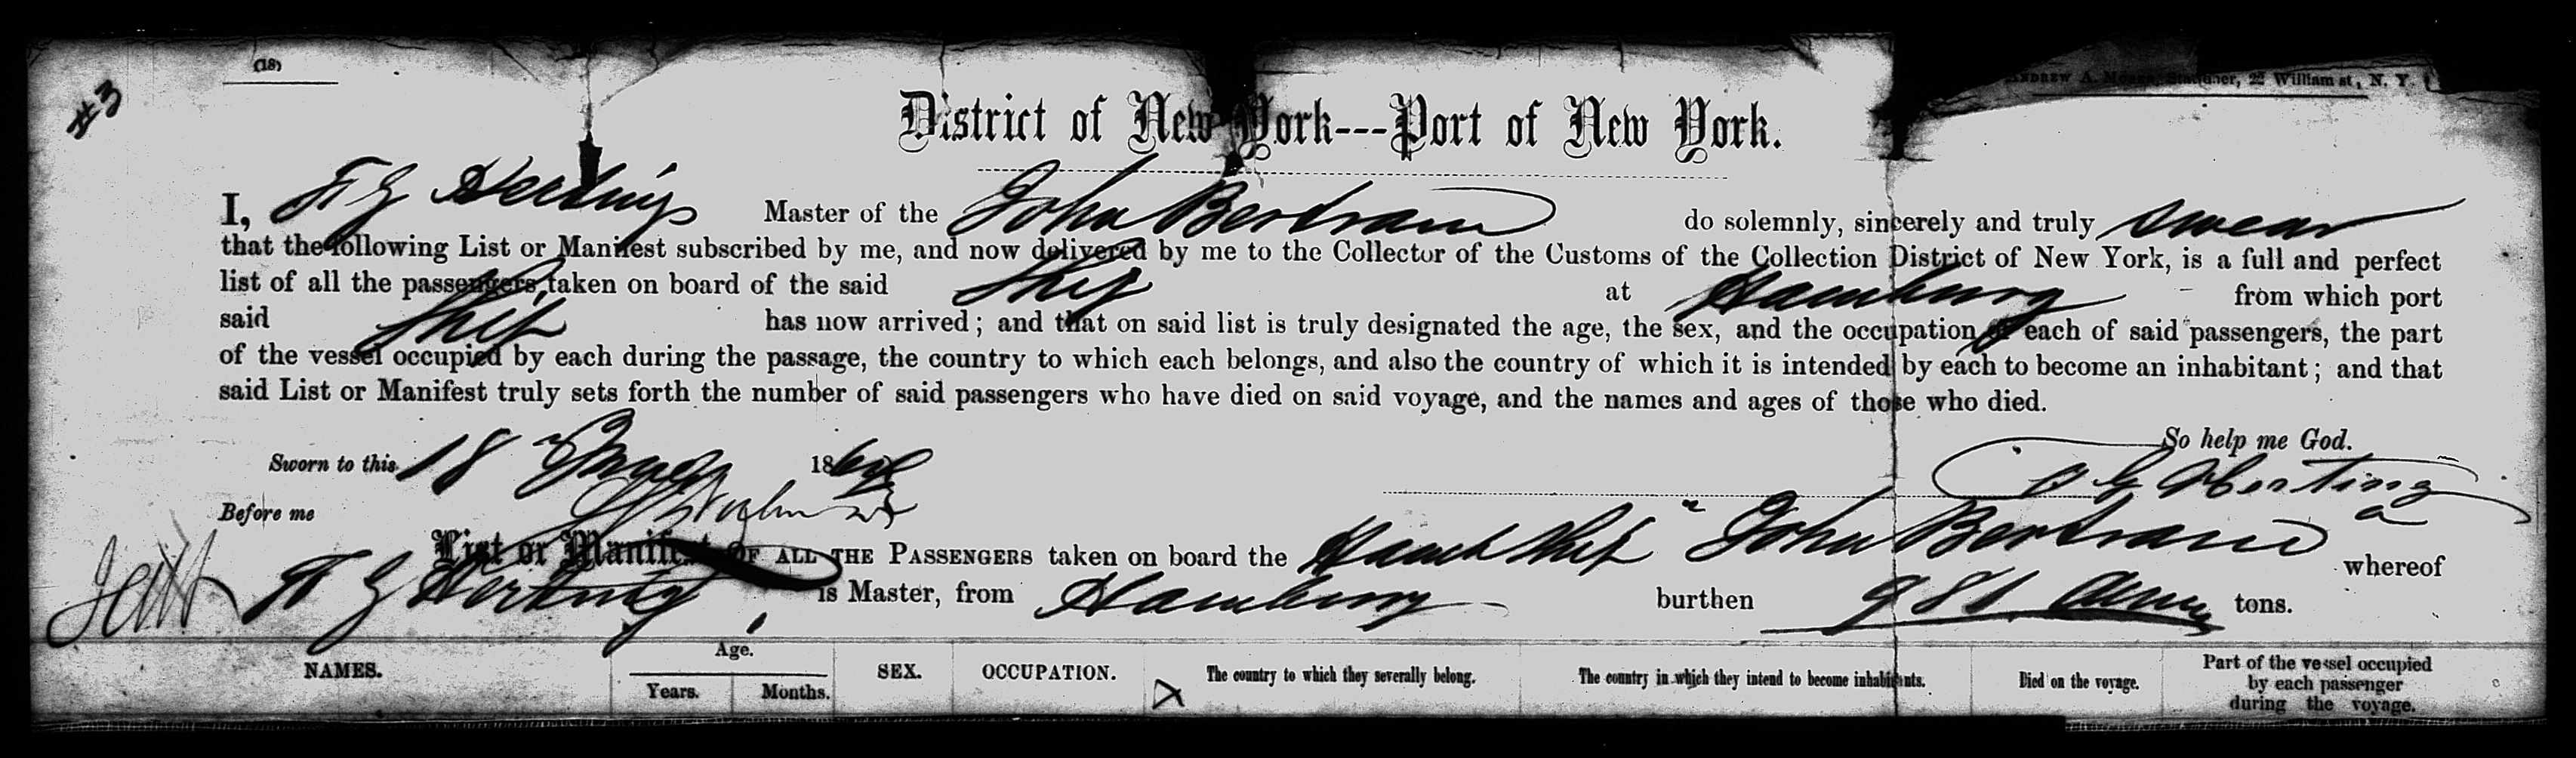 (18)
#3
ANDREW A. Stationer, 22 William st, N. Y.
District of New York---Port of New York.
I, Master of the John Bertram do solemnly, sincerely and truly swear
that the following List or Manifest subscribed by me, and now delivered by me to the Collector of the Customs of the Collection District of New York, is a full and perfect
list of all the passengers taken on board of the said Ship at Hamburg from which port
said Ship has now arrived; and that on said list is truly designated the age, the sex, and the occupation of each of said passengers, the part
of the vessel occupied by each during the passage, the country to which each belongs, and also the country of which it is intended by each to become an inhabitant; and that
said List or Manifest truly sets forth the number of said passengers who have died on said voyage, and the names and ages of those who died.
So help me God.
Sworn to this 18 186
Before me
List or Manifest OF ALL THE PASSENGERS taken on board the Ship "John Bertram" whereof
is Master, from Hamburg burthen 981 tons.
NAMES. Age. Years. Months. SEX. OCCUPATION. The country to which they severally belong. The country in which they intend to become inhabitants. Died on the voyage. Part of the vessel occupied by each passenger during the voyage.